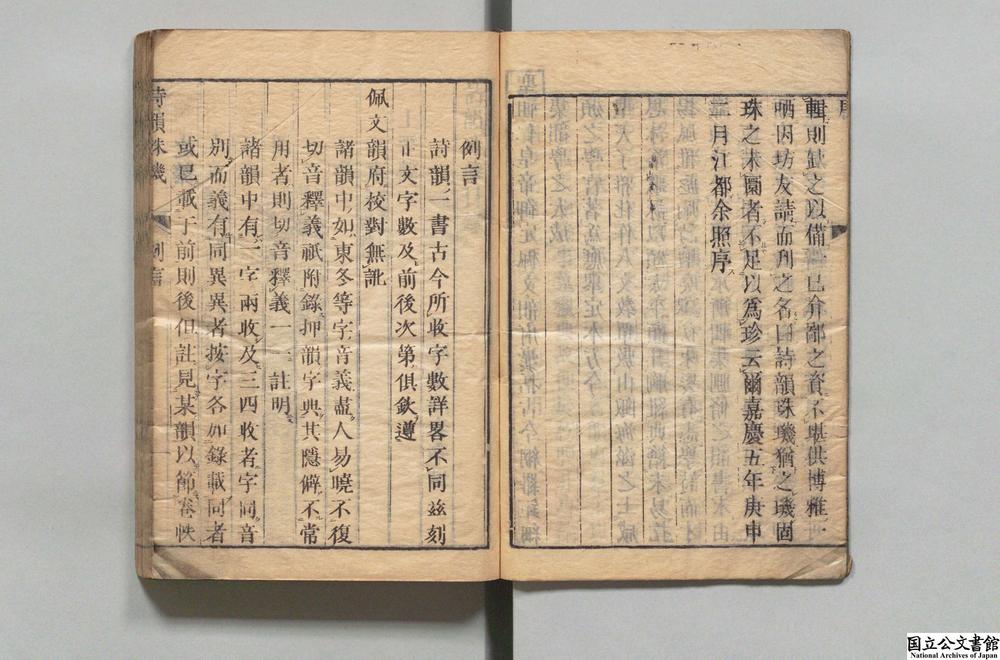 序
輯則
之以備
巳弇鄙之資不堪供博雅一
哂因坊友請而刋之名曰詩韻珠璣猶之璣固
珠之未圜者不足以爲珍云爾嘉慶五年庚申
二月江都余照序
例言
詩韻一書古今所收字數詳畧不同兹刻
正文字數及前後次第俱欽遵
佩文韻府校對無訛
諸韻中如東冬等字音義盡人易曉不復
切音釋義祇附錄押韻字典其隱僻不常
用者則切音釋義一一註明
諸韻中有一字兩收及三四收者字同音
別而義有同異異者按字各加錄載同者
或巳載于前則後但註見某韻以節卷帙
詩韻珠璣
例言
国立公文書館
National Archives of Japan